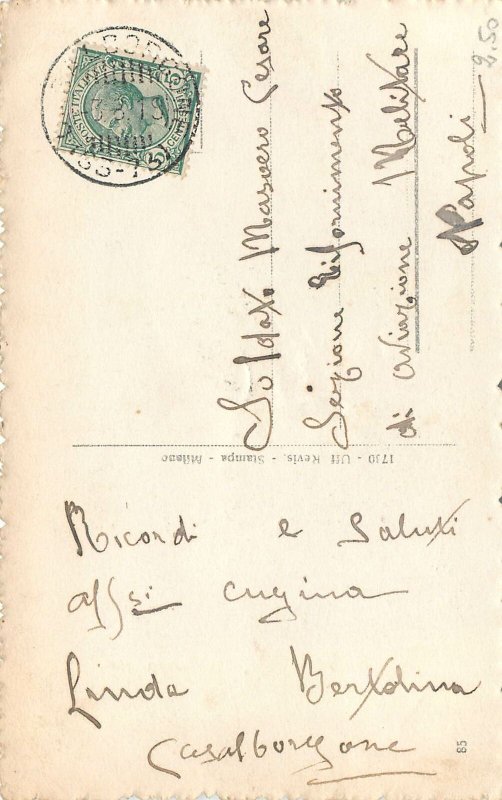 Ricordi e saluti
affsi cugina
Linda Bertolina
Casalborgone
Soldato Masoero Cesare
Sezione Rifornimento
di aviazione Militare
Napoli
1730 - Uff Revis. - Stampa - Milano
85
2.50
POSTE ITALIANE
CENT. 5